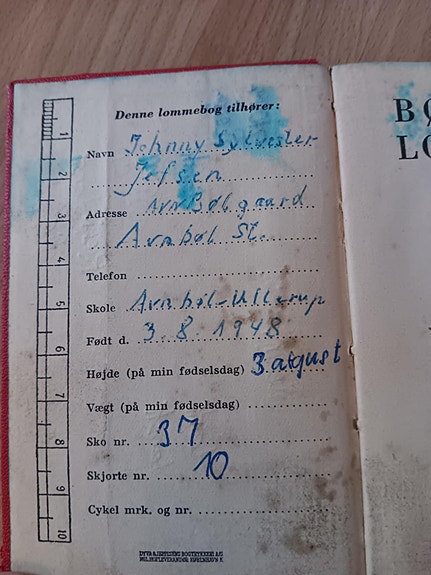 Denne lommebog tilhører:
Navn Johnny Sylvester
Jefsen
Adresse Avnbølgaard
Avnbøl St.
Telefon
Skole Avnbøl-Ullerup
Født d. 3.8.1948
Højde (på min fødselsdag) 3 august
Vægt (på min fødselsdag)
Sko nr. 37
Skjorte nr. 10
Cykel mrk. og nr.
1
2
3
4
5
6
7
8
9
10
BØ
LO